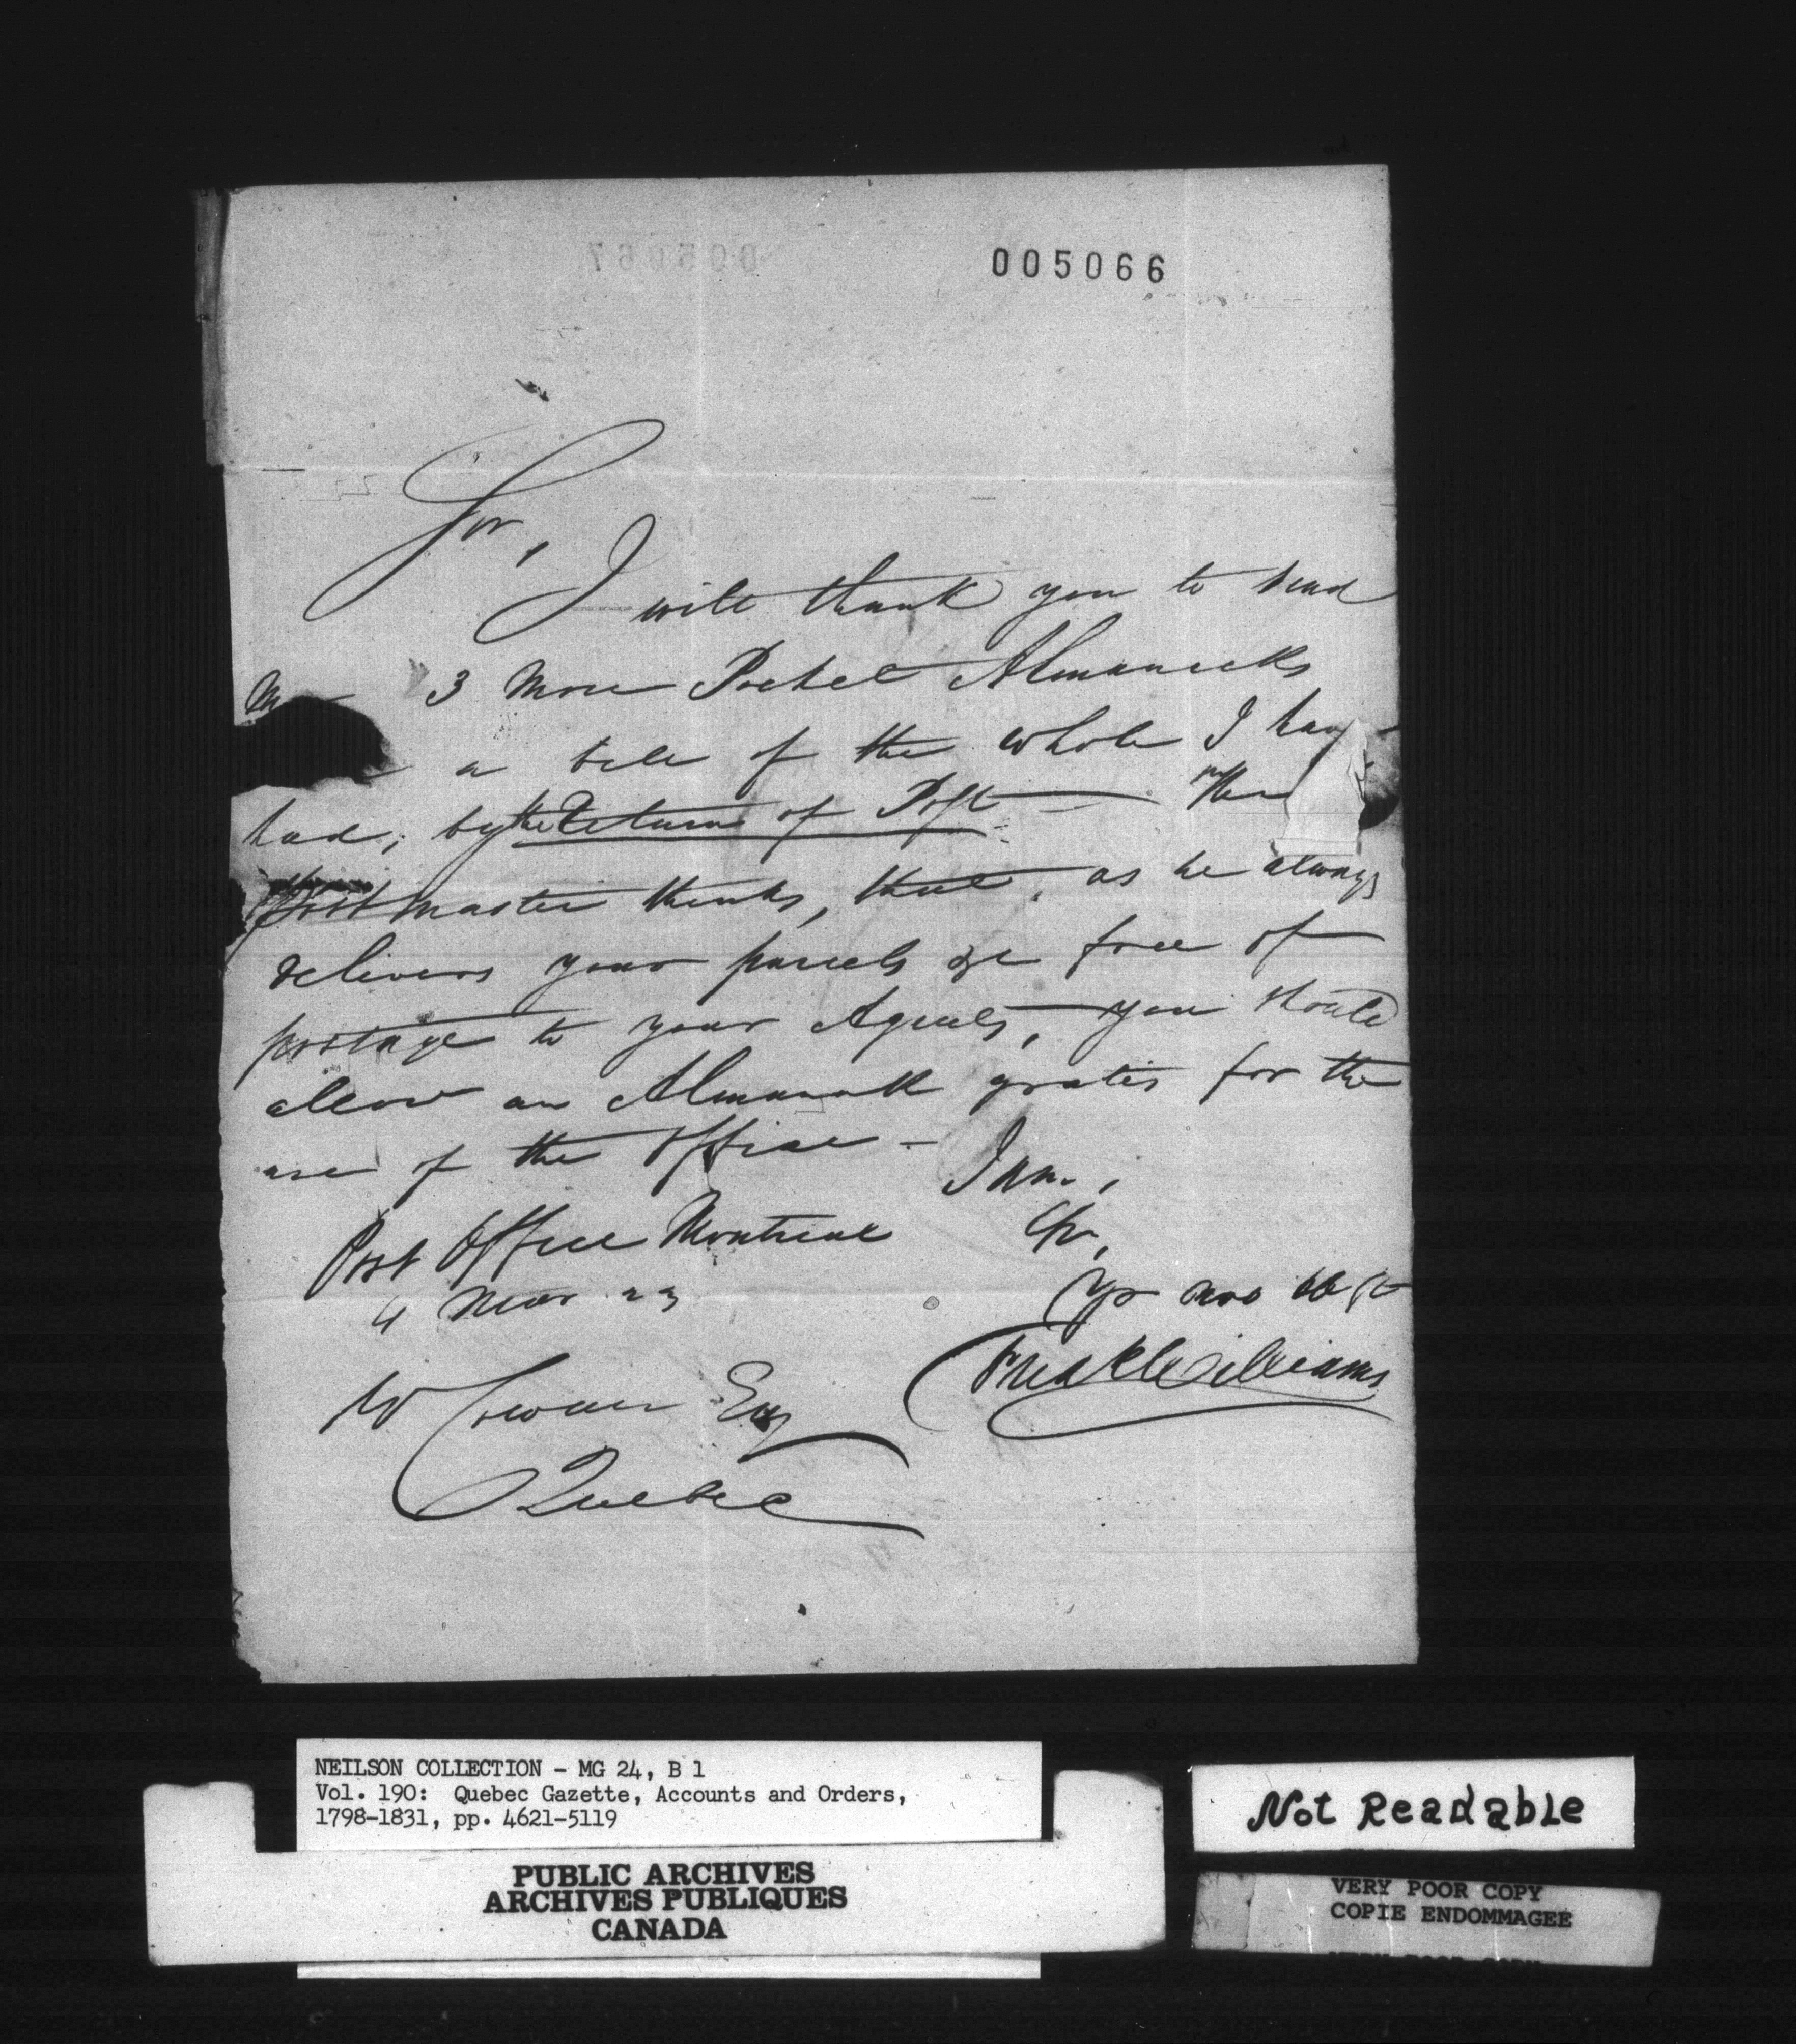 005066
Sir,
I will thank you to send
Me 3 More Pocket Almanacks
a bill of the whole I have
had, by the Return of Post — The
Postmaster thinks, that, as he always
delivers your parcels &c free of
postage to your Agents, you should
allow an Almanack gratis for the
use of the Office — I am,
Sir,
Post Office Montreal
4 Mar 23
Yr mo ob St
Williams
W Cowan Esq
Quebec
NEILSON COLLECTION - MG 24, B 1
Vol. 190: Quebec Gazette, Accounts and Orders,
1798-1831, pp. 4621-5119
PUBLIC ARCHIVES
ARCHIVES PUBLIQUES
CANADA
Not Readable
VERY POOR COPY
COPIE ENDOMMAGEE